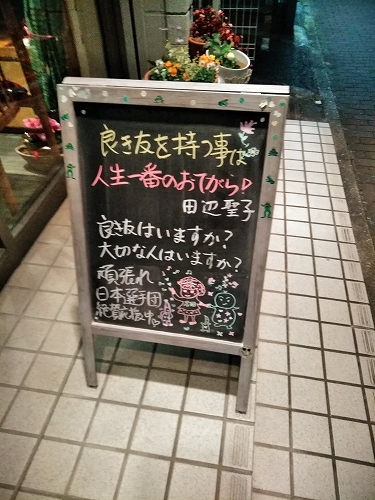 良き友を持つ事は
人生一番のおてがら♪
田辺聖子
良き友はいますか?
大切な人はいますか?
頑張れ
日本選手団
絶賛応援中